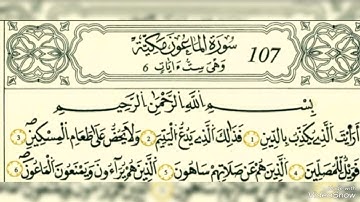 سُورَةُ الْمَاعُونَ مَكِّيَّةٌ
107
وَهِيَ سِتُّ ءَايَاتٍ 6
بِسْمِ اللَّهِ الرَّحْمَٰنِ الرَّحِيمِ
أَرَأَيْتَ الَّذِي يُكَذِّبُ بِالدِّينِ 1 فَذَٰلِكَ الَّذِي يَدُعُّ الْيَتِيمَ 2 وَلَا يَحُضُّ عَلَىٰ طَعَامِ الْمِسْكِينِ 3
فَوَيْلٌ لِلْمُصَلِّينَ 4 الَّذِينَ هُمْ عَنْ صَلَاتِهِمْ سَاهُونَ 5 الَّذِينَ هُمْ يُرَآءُونَ وَيَمْنَعُونَ الْمَاعُونَ 6